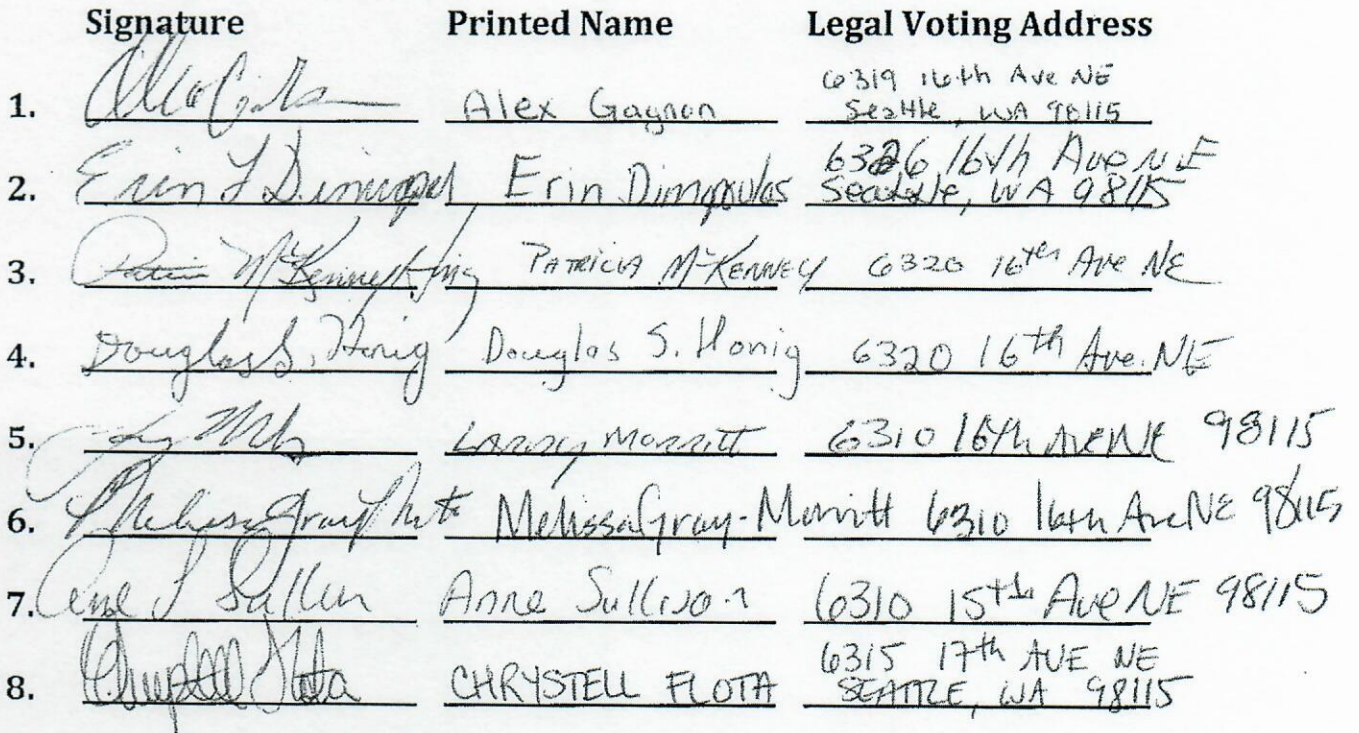 Signature Printed Name Legal Voting Address
1. Alex Gagnon 6319 16th Ave NE
Seattle, WA 98115
2. Erin Dimopoulos 6326 16th Ave NE
Seattle, WA 98115
3. Patricia McKenney King PATRICIA McKENNEY 6320 16th Ave NE
4. Douglas S. Honig Douglas S. Honig 6320 16th Ave. NE
5. Larry Merritt 6310 16th Ave NE 98115
6. Melissa Gray-Merritt 6310 16th Ave NE 98115
7. Anne Sullivan 6310 15th Ave NE 98115
8. CHRYSTELL FLOTA 6315 17th AVE NE
SEATTLE, WA 98115